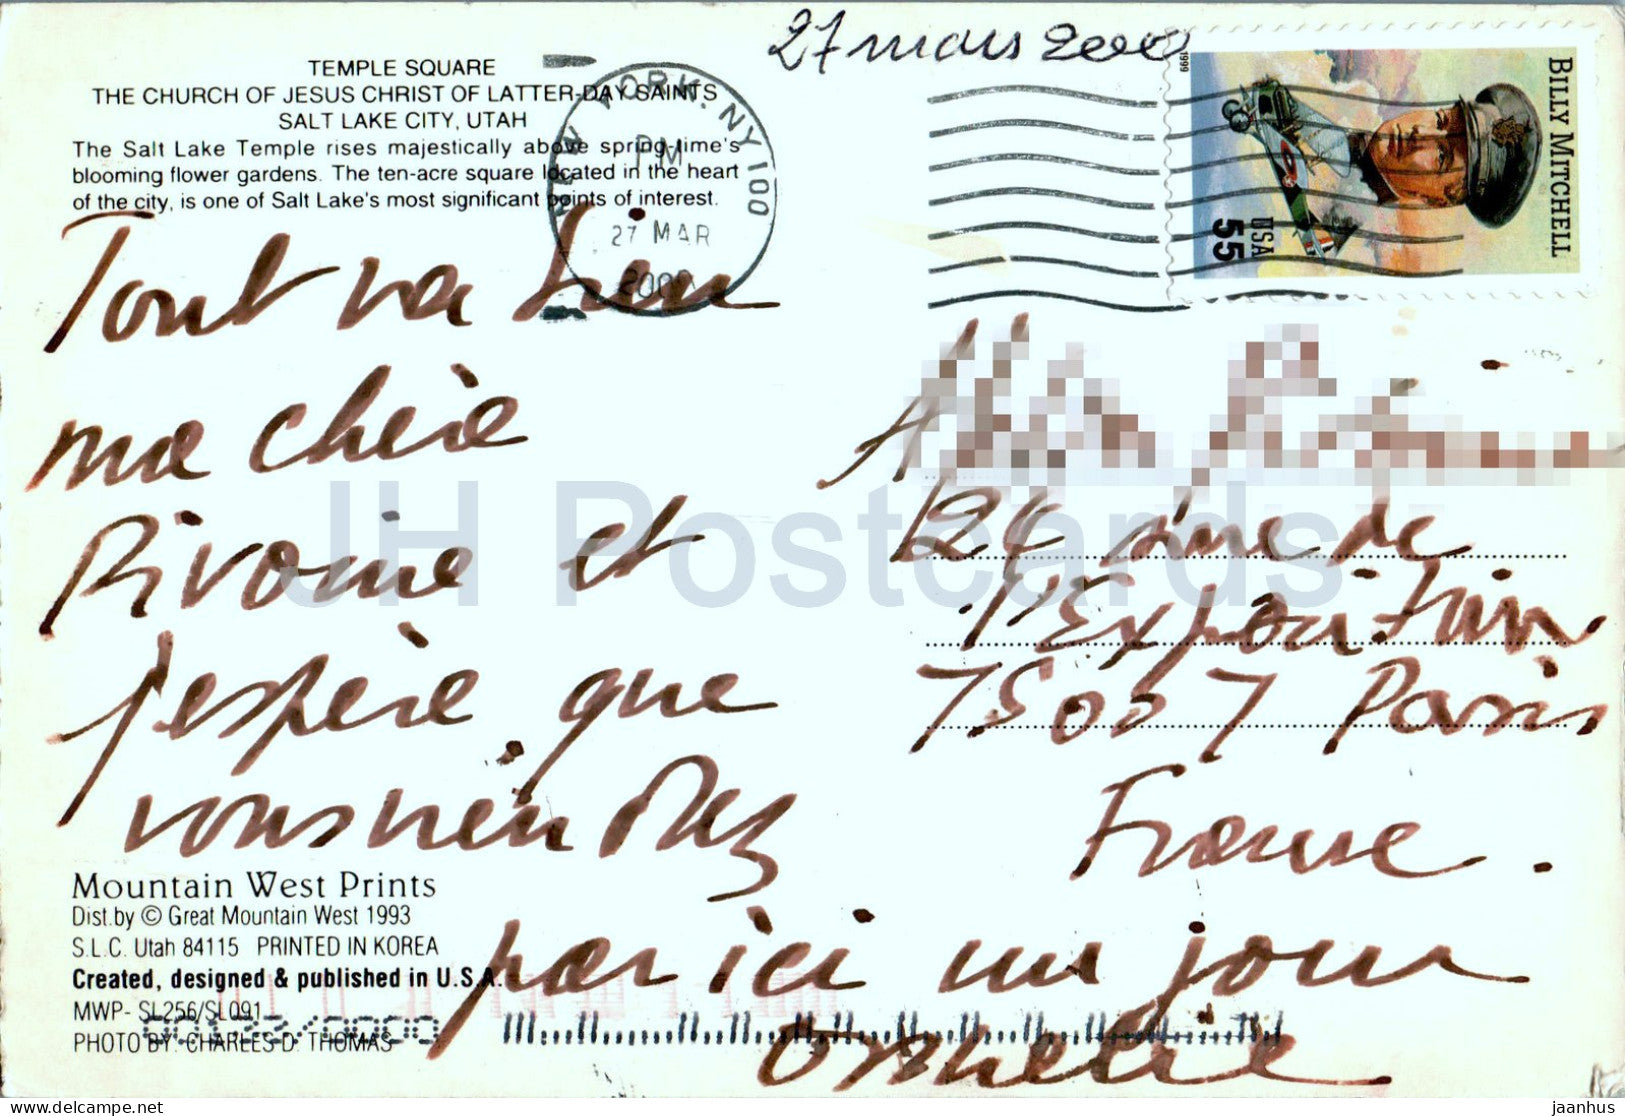 27 mars 2000
TEMPLE SQUARE
THE CHURCH OF JESUS CHRIST OF LATTER-DAY SAINTS
SALT LAKE CITY, UTAH
The Salt Lake Temple rises majestically above spring-time's
blooming flower gardens. The ten-acre square located in the heart
of the city, is one of Salt Lake's most significant points of interest.
NEW YORK, NY 100
PM
27 MAR
2000
1999
BILLY MITCHELL
USA
55
Tout va bien
ma chère
et
j'espère que
vous viendrez
par ici un jour
rue de
l'Exposition
75007 Paris
France.
Mountain West Prints
Dist.by © Great Mountain West 1993
S.L.C. Utah 84115 PRINTED IN KOREA
Created, designed & published in U.S.A.
MWP- SL256/SL091
PHOTO BY: CHARLES D. THOMAS
JH Postcards
delcampe.net
jaanhus